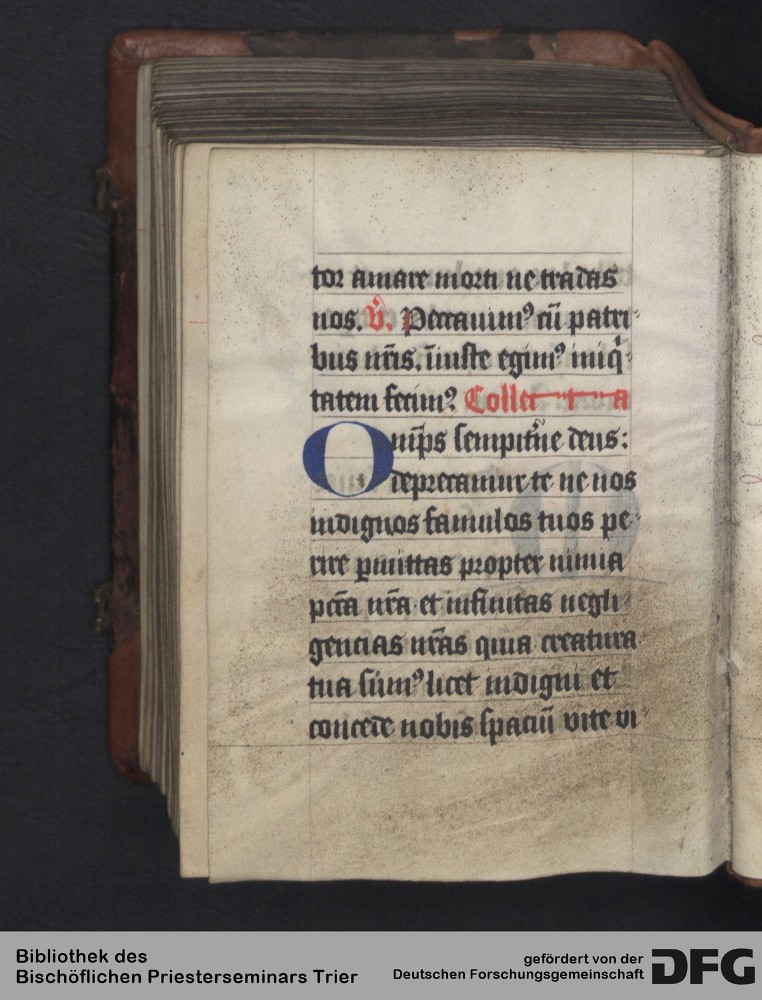 tor amare morti ne tradas
nos. v̓. Peccauimꝰ cū patri
bus nr̄is. īiuste egimꝰ iniqⁱ
tatem fecimꝰ Collecta
Omīps sempit̓ne deus:
deprecamur te ne nos
indignos famulos tuos pe
rire ꝑmittas propter nimia
pcc̄a nr̄a et infinitas negli
gencias nr̄as quia creatura
tua sūmꝰ licet indigni et
concede nobis spaciū vite vi
Bibliothek des
Bischöflichen Priesterseminars Trier
gefördert von der
Deutschen Forschungsgemeinschaft
DFG